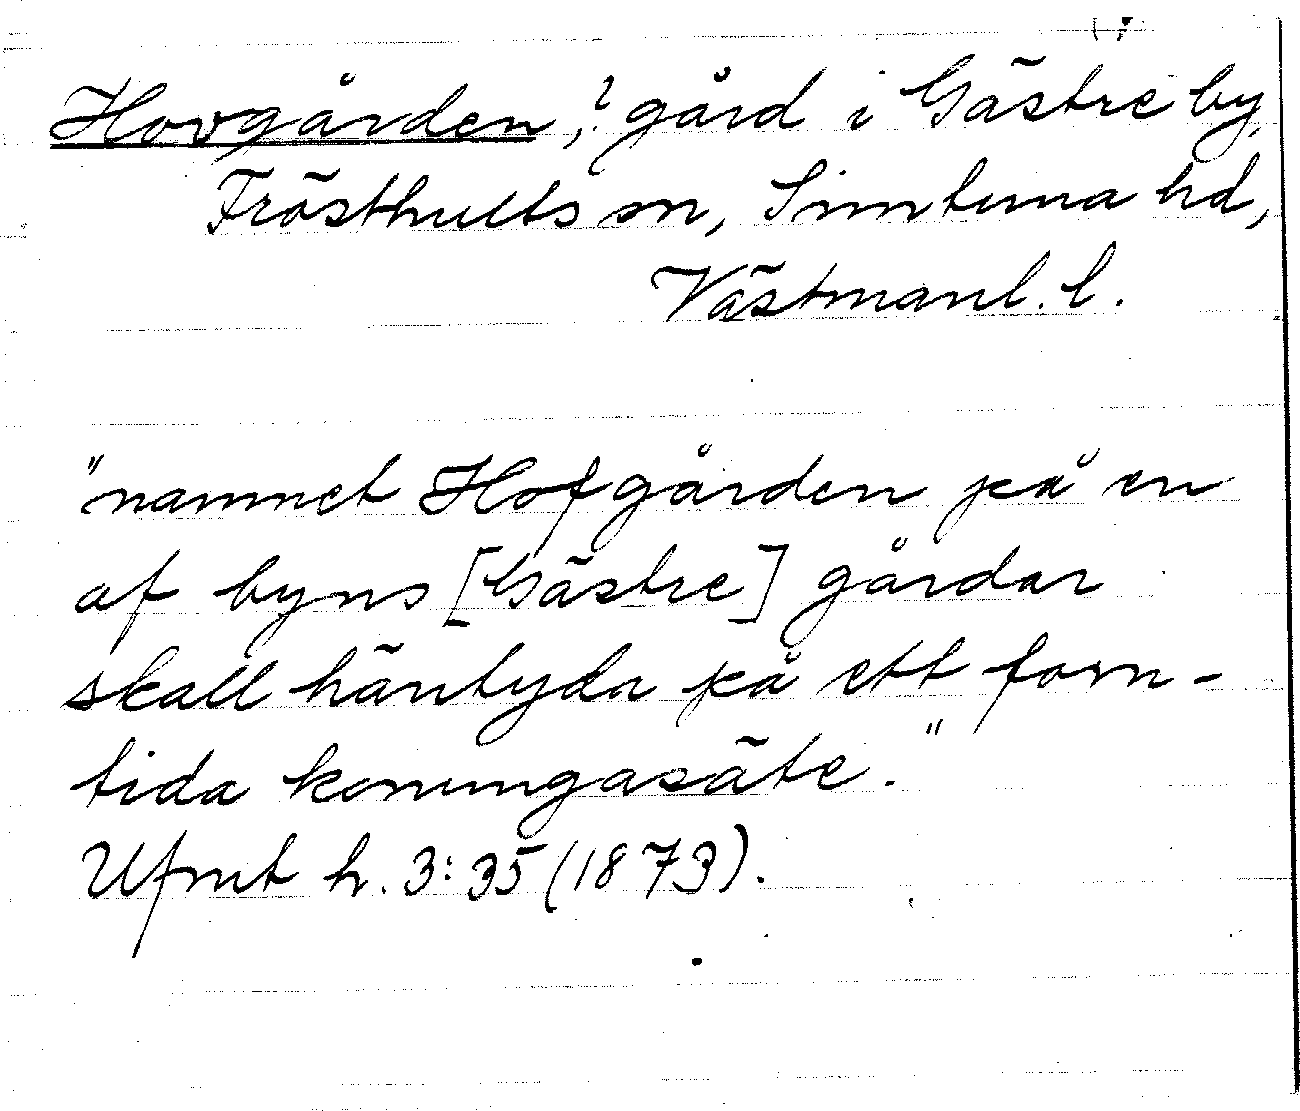 Hovgården,? gård i Gästre by,
Frösthults sn, Simtuna hd,
Västmanl. l.
"namnet Hofgården på en
af byns [Gästre] gårdar
skall häntyda på ett forn-
tida konungasäte."
Ufmt h. 3:35 (1873).